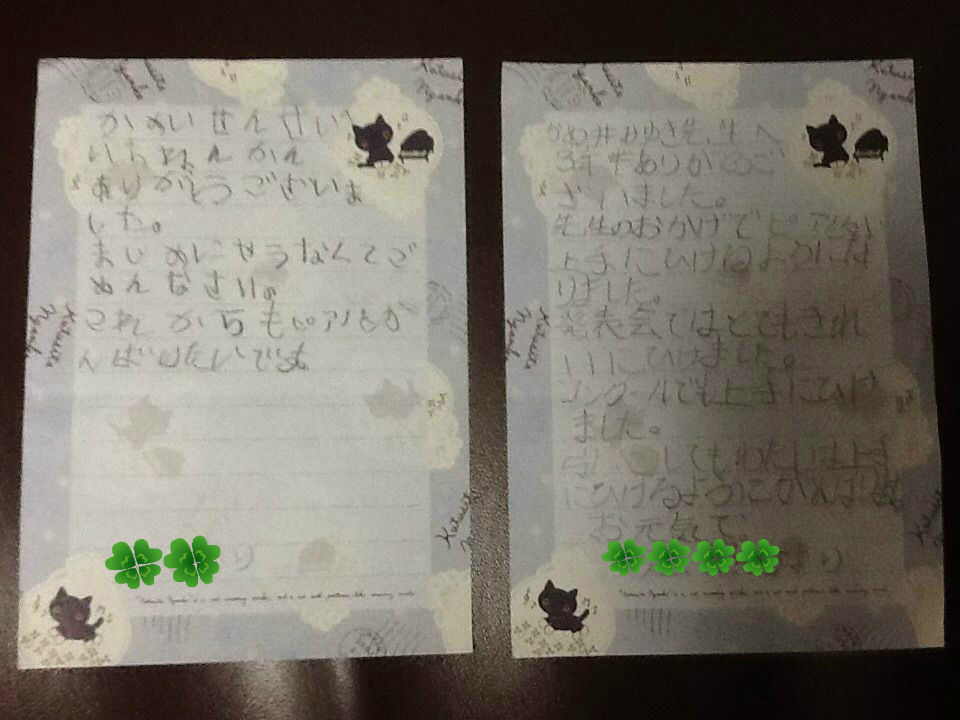 かめいせんせい
いちねんかん
ありがとうございま
した。
まじめにやらなくてご
めんなさい。
これからもピアノをが
んばりたいです
り
かめ井みゆき先生へ
3年半ありがとうご
ざいました。
先生のおかげでピアノが
上手にひけるようにな
りました。
発表会ではとてもきれ
いにひけました。
コンクールでも上手にひけ
ました。
してもわたしは上手
にひけるようにがんばる
お元気で
より
Katusha
Nyanko